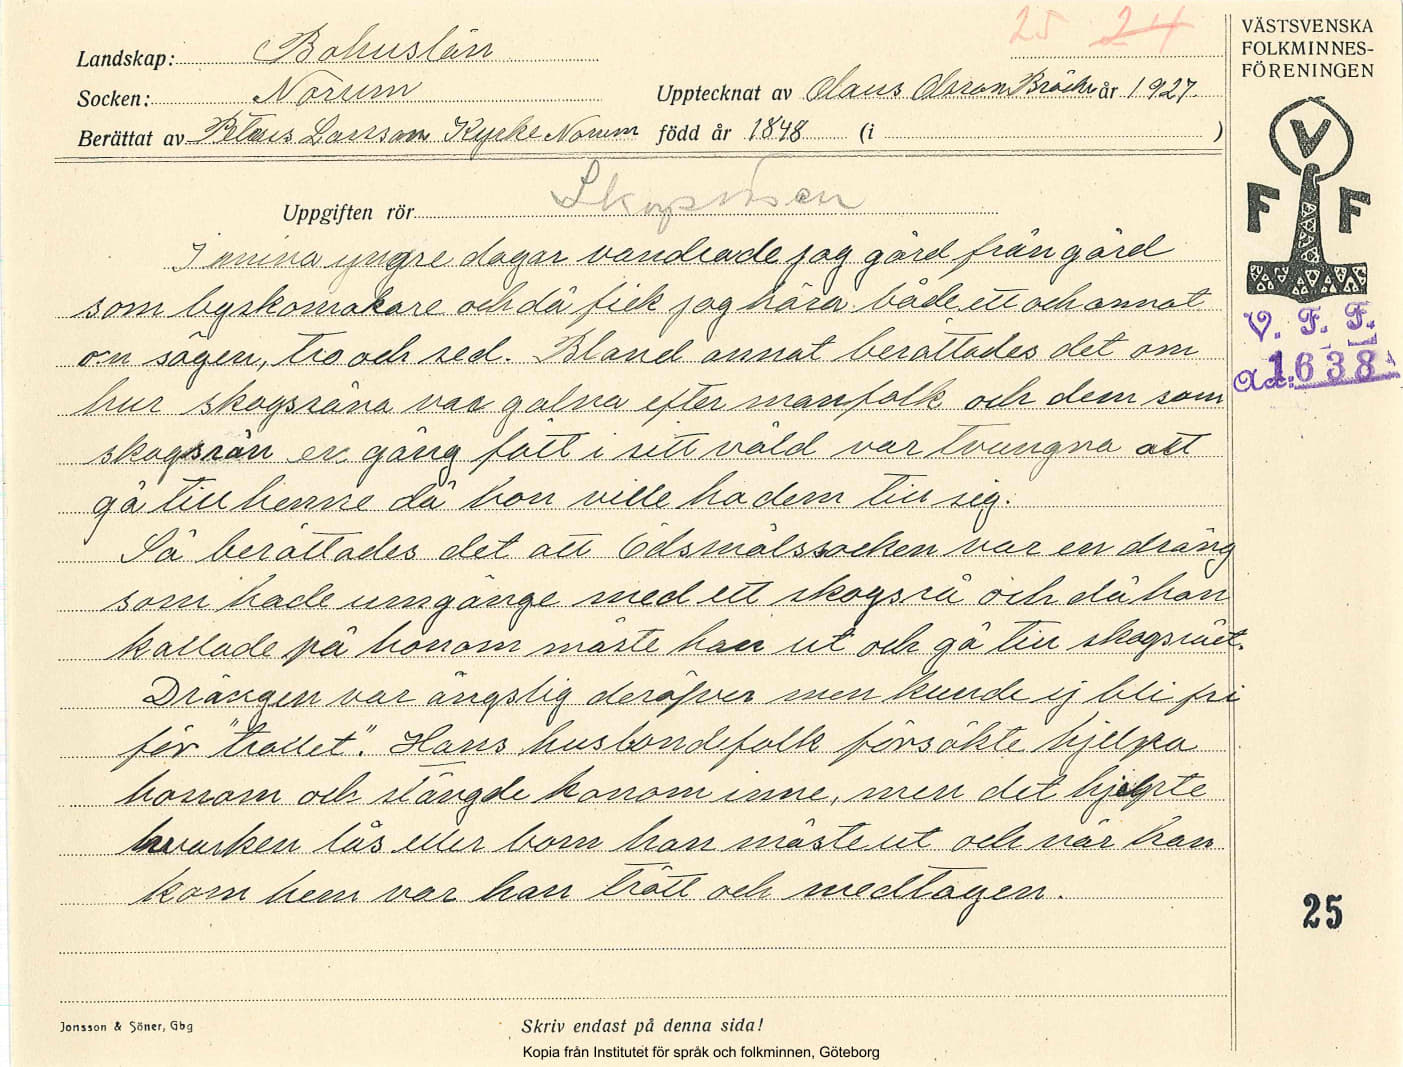 25 24
VÄSTSVENSKA
FOLKMINNES-
FÖRENINGEN
Landskap: Bohuslän
Socken: Norum
Upptecknat av Olaus Olsson år 1927.
Berättat av Larsson Kyrke Norum född år 1848 (i )
V
F F
Uppgiften rör Skogsråen
I mina yngre dagar vandrade jag gård från gård
som byskomakare och då fick jag höra både ett och annat
om sägen, tro och sed. Bland annat berättades det om
hur skogsråna var galna efter manfolk och dem som
skogsrån en gång fått i sitt våld var tvungna att
gå till henne då hon ville ha dem till sig.
Så berättades det att Ödsmålssocken var en dräng
som hade umgänge med ett skogsrå och då hon
kallade på honom måste han ut och gå till skogsrået.
Drängen var ängslig deröfver men kunde ej bli fri
för "trollet". Hans husbondefolk försökte hjelpa
honom och stängde honom inne, men det hjelpte
hvarken lås eller bom han måste ut och när han
kom hem var han trött och medtagen.
V. F. F.
Acc: 1638
25
Jonsson & Söner, Gbg
Skriv endast på denna sida!
Kopia från Institutet för språk och folkminnen, Göteborg